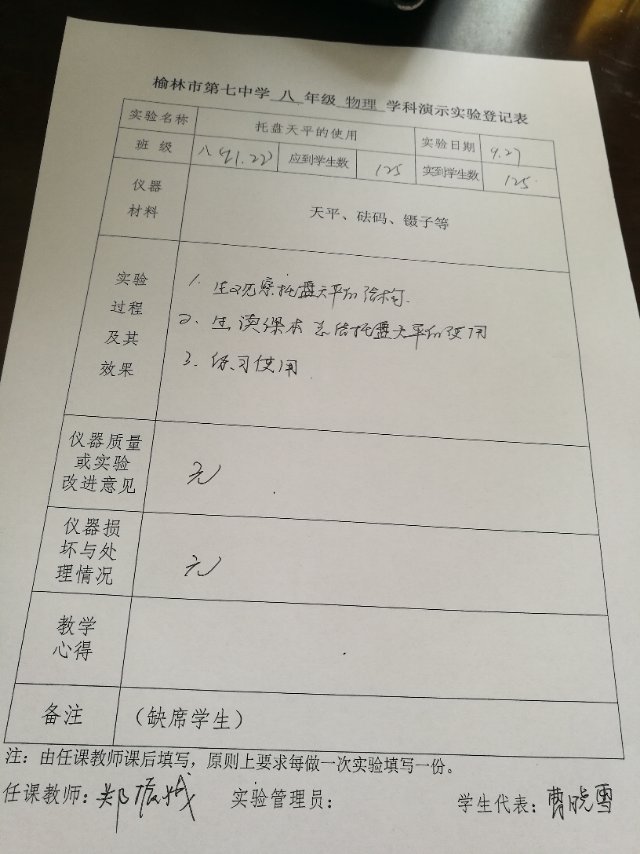 榆林市第七中学 八 年级 物理 学科演示实验登记表
实验名称 托盘天平的使用 实验日期 9.27
班 级 八(21.22) 应到学生数 125 实到学生数 125
仪器
材料
天平、砝码、镊子等
实验
过程
及其
效果
1. 生观察托盘天平的结构.
2. 生读课本 总结托盘天平的使用
3. 练习使用
仪器质量
或实验
改进意见
无
仪器损
坏与处
理情况
无
教学
心得
备注 (缺席学生)
注：由任课教师课后填写，原则上要求每做一次实验填写一份。
任课教师：郑振 实验管理员： 学生代表：曹晓雪